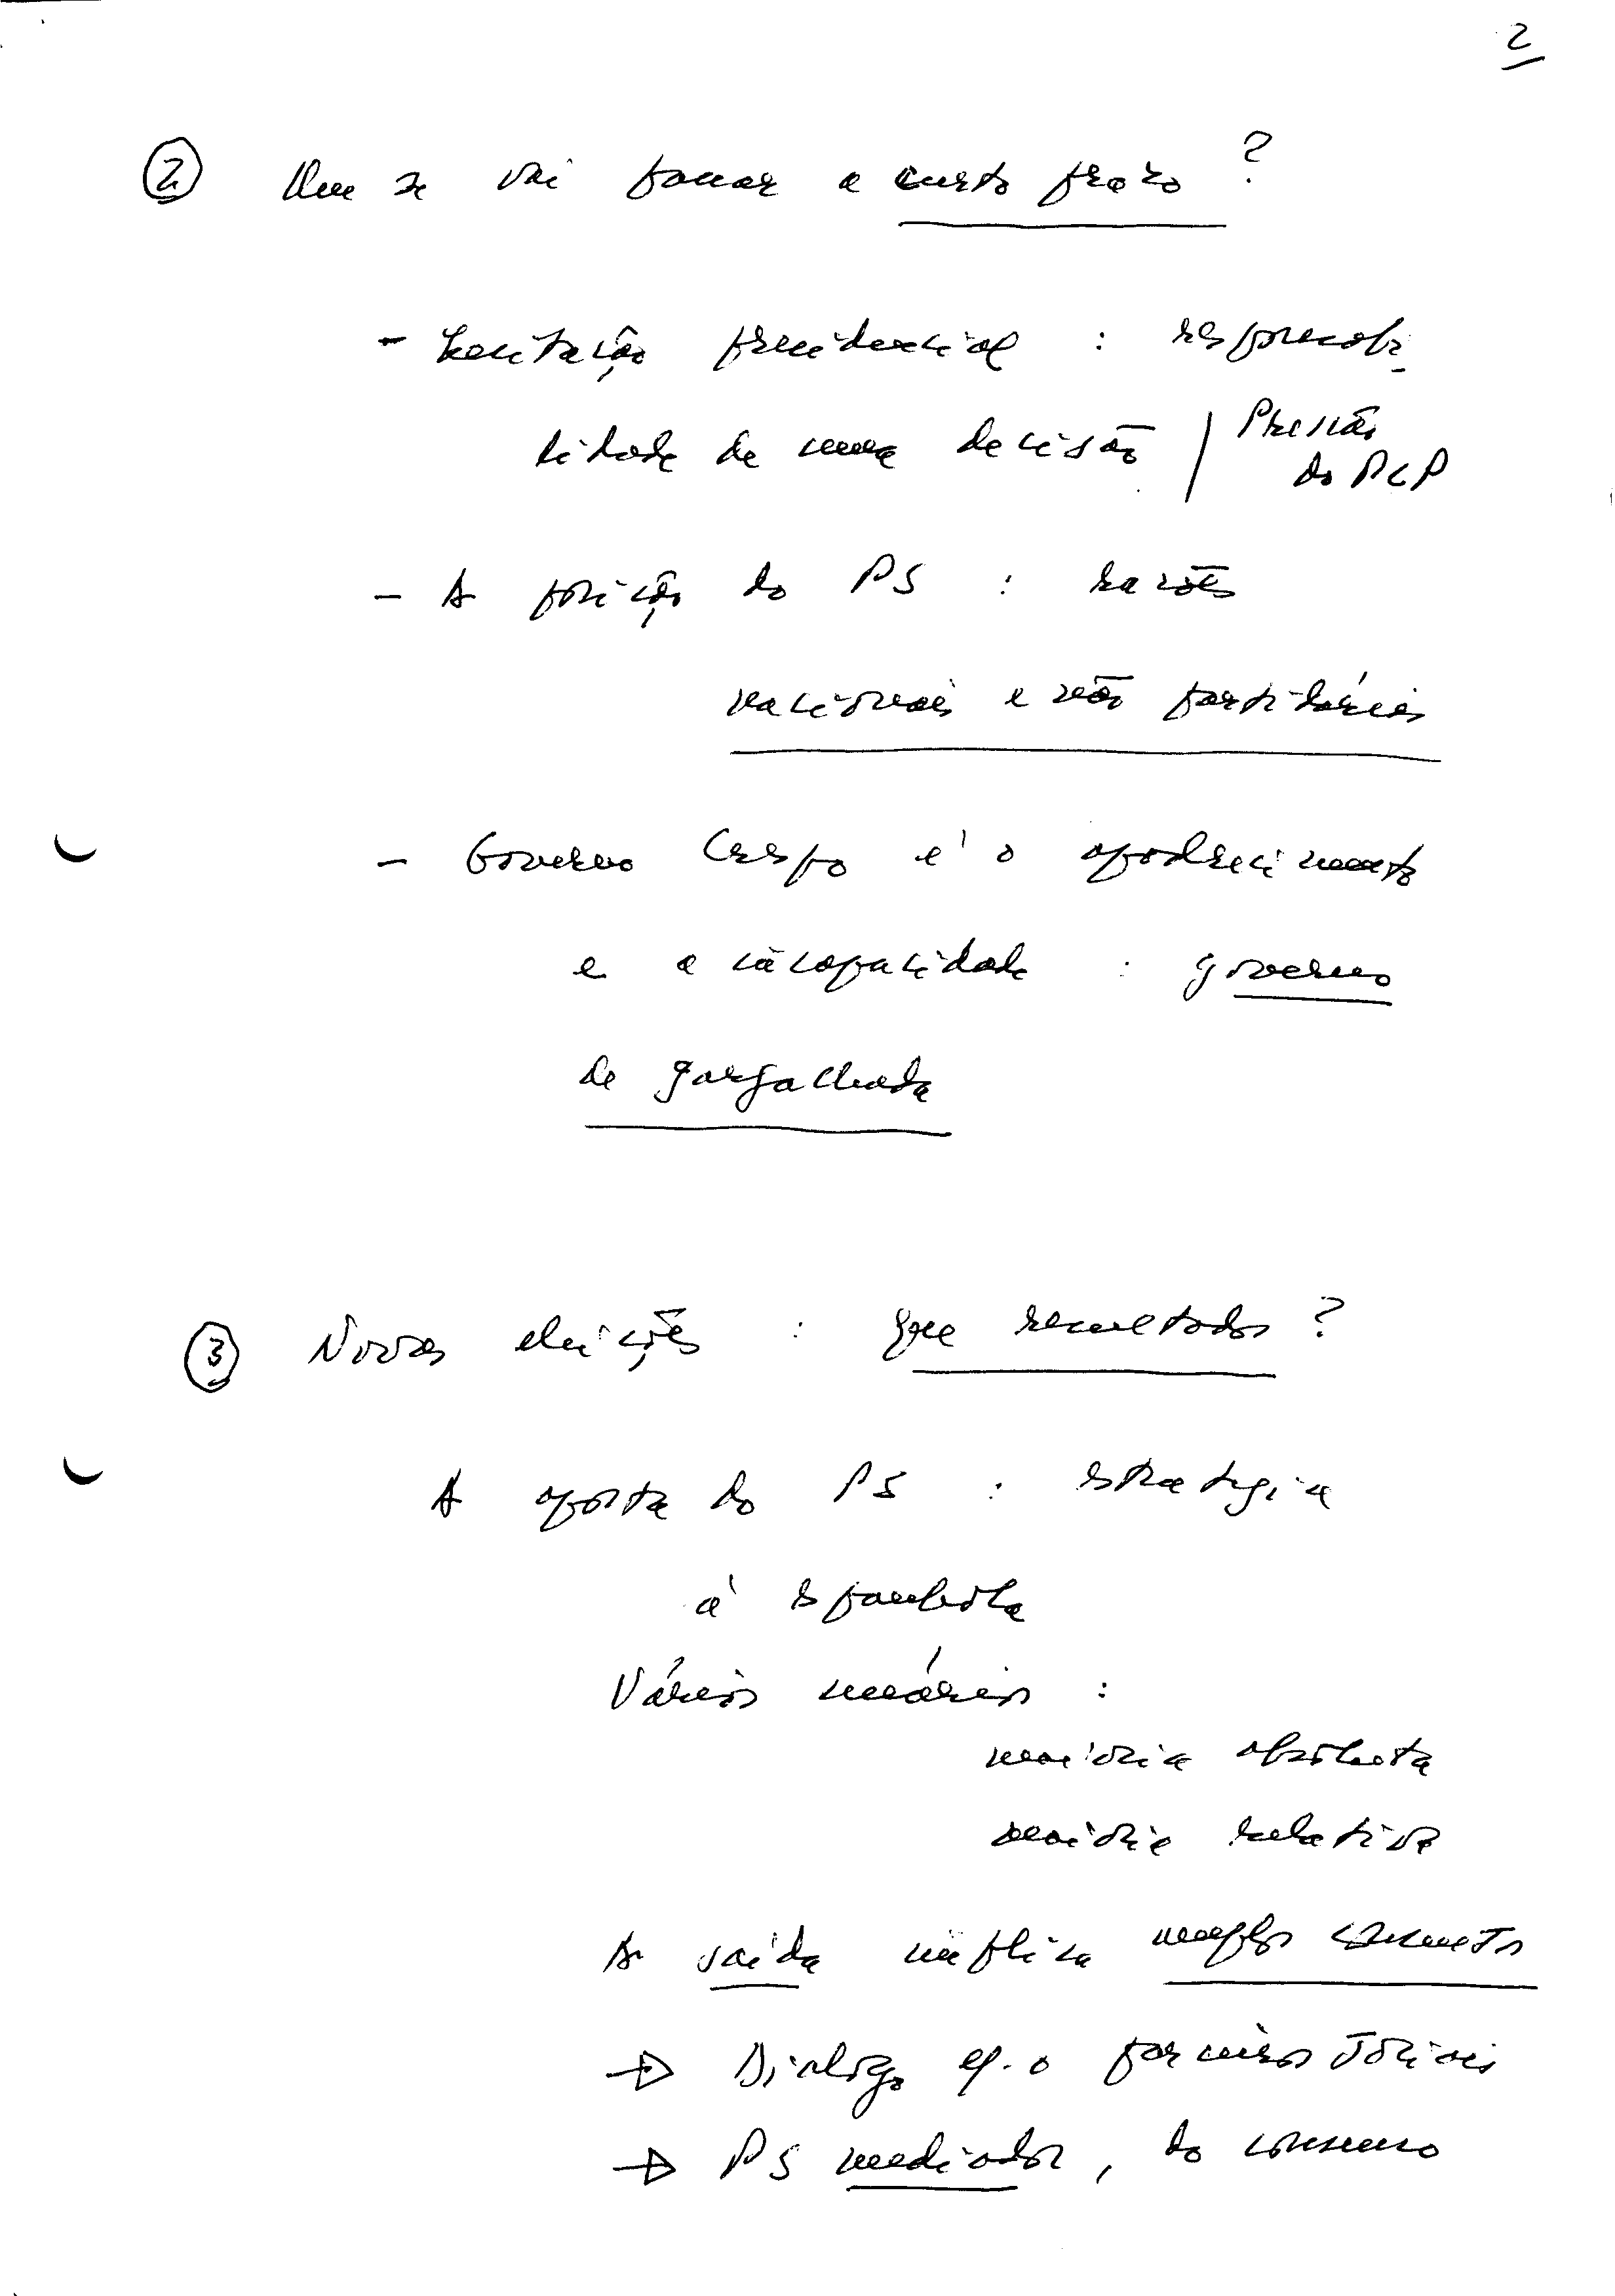 2
② Que se vai passar a curto prazo ?
- hesitação presidencial : responsabi-
lidade de uma decisão / Pressão
do PCP
- A posição do PS : razões
nacionais e não partidárias
- Governo Crespo é o apodrecimento
e a incapacidade : governo
de gargalhada
③ Novas eleições : que resultados ?
A aposta do PS : estratégia
à espanhola
Vários cenários :
maioria absoluta
maioria relativa
A saída implica amplo consenso
→ Diálogo c/. o parceiros sociais
→ PS mediador, do consenso